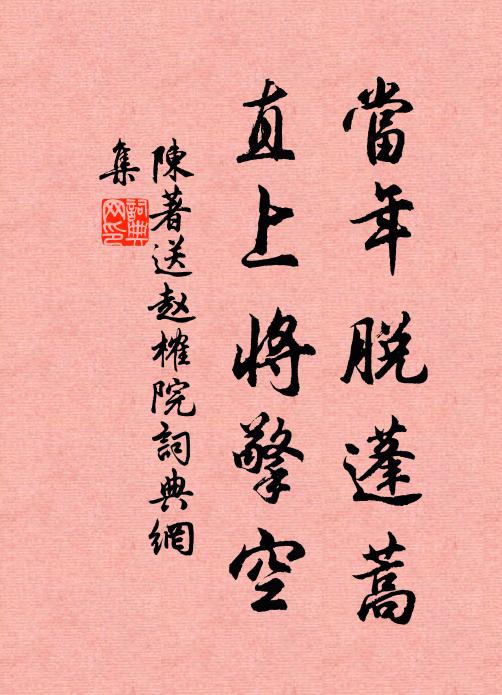 當年脫蓬蒿
直上將擎空
陳著送赵榷院詞典網
集
詞典
网印